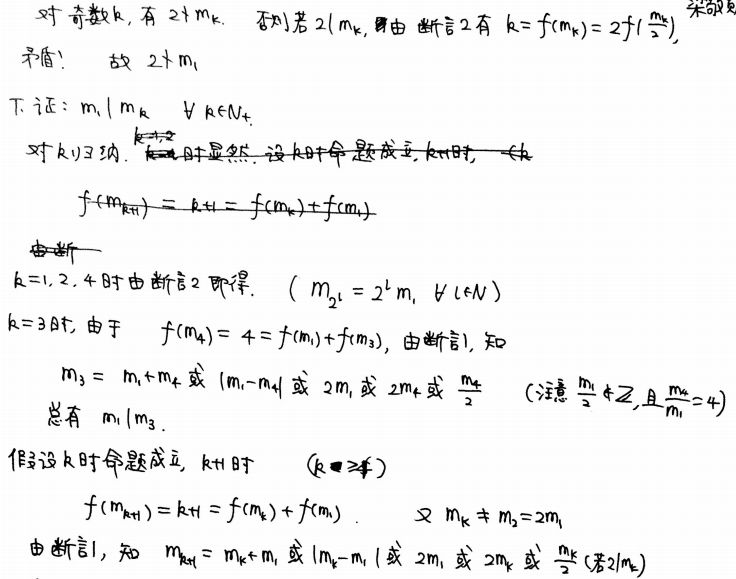 对奇数k, 有 2∤m_k. 否则若 2|m_k, 由断言2有 k=f(m_k)=2f(m_k/2),
矛盾! 故 2∤m_1
下证: m_1|m_k ∀k∈N_+.
对k归纳. k=1,2 时显然. 设k时命题成立, k+1时,
f(m_{k+1}) = k+1 = f(m_k)+f(m_1)
由断
k=1,2,4时由断言2即得. ( m_{2^l} = 2^l m_1 ∀l∈N )
k=3时, 由于 f(m_4) = 4 = f(m_1)+f(m_3), 由断言1, 知
m_3 = m_1+m_4 或 |m_1-m_4| 或 2m_1 或 2m_4 或 m_4/2 (注意 m_1/2 ∉ Z, 且 m_4/m_1 = 4)
总有 m_1|m_3.
假设k时命题成立, k+1时 (k≥4)
f(m_{k+1}) = k+1 = f(m_k)+f(m_1). 又 m_k ≠ m_2 = 2m_1
由断言1, 知 m_{k+1} = m_k+m_1 或 |m_k-m_1| 或 2m_1 或 2m_k 或 m_k/2 (若2|m_k)